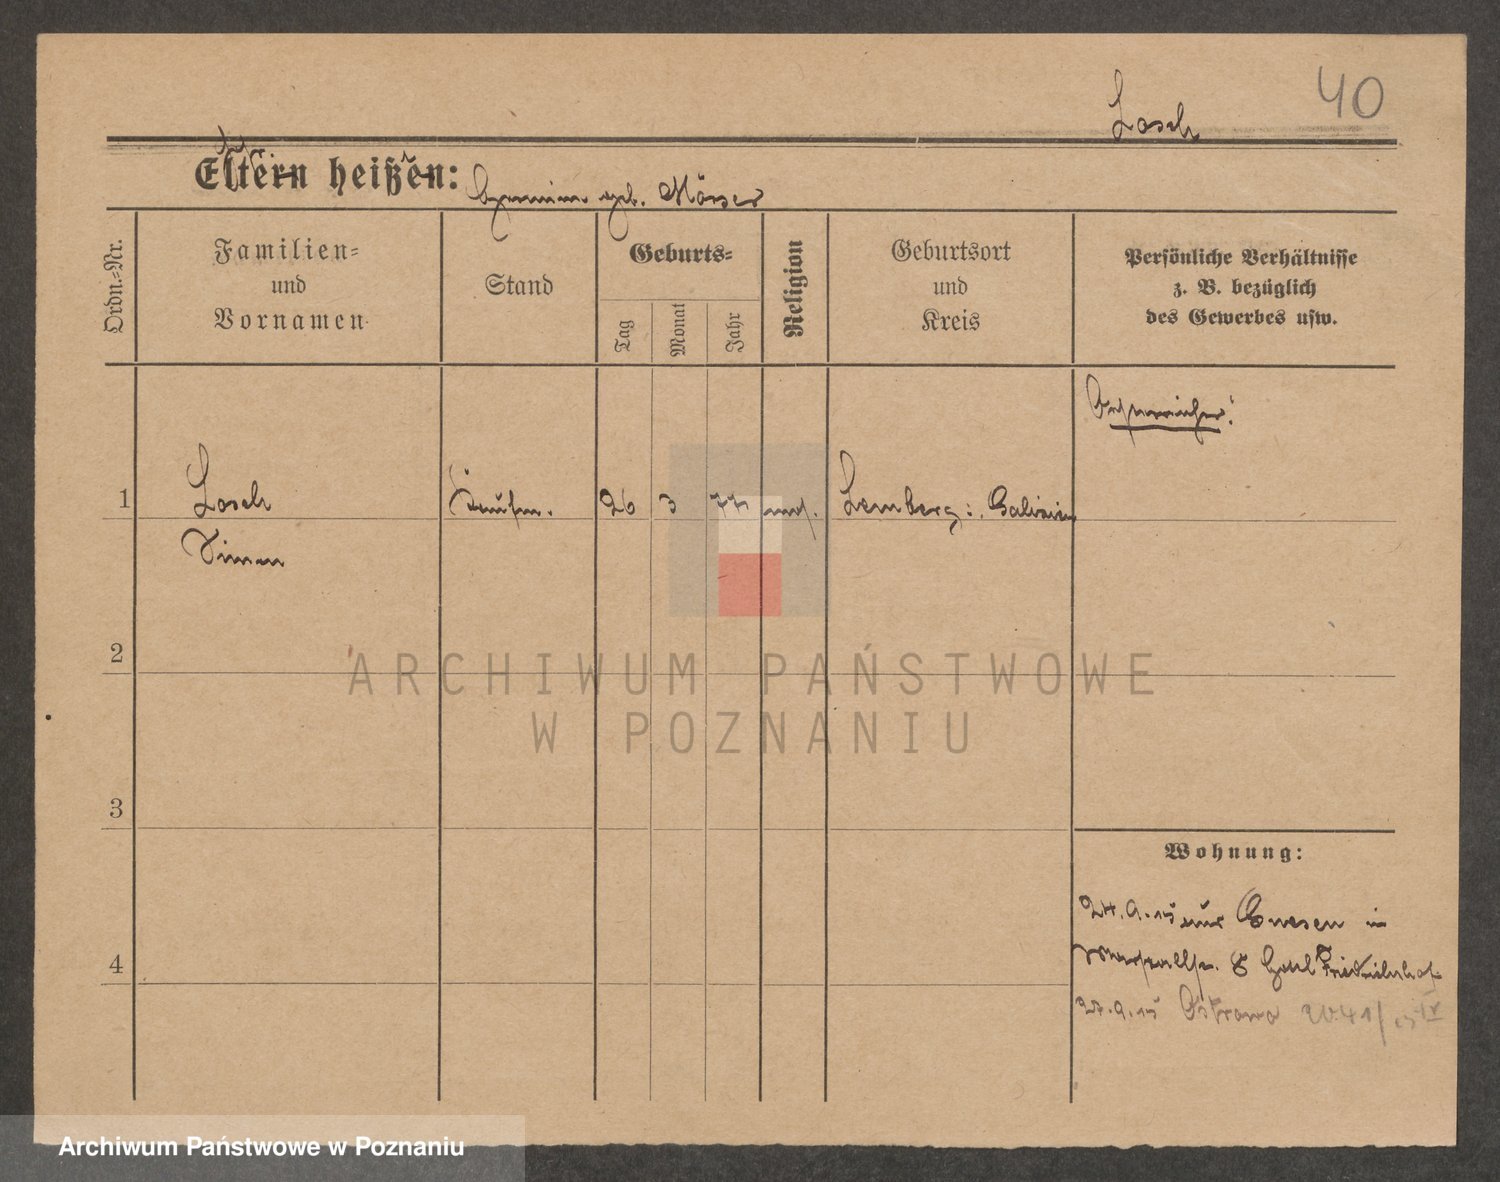 40
Losch
Eltern heißen:
geb. Mörser
Ordn.-Nr.
Familien-
und
Vornamen
Stand
Geburts-
Tag
Monat
Jahr
Religion
Geburtsort
und
Kreis
Persönliche Verhältnisse
z. B. bezüglich
des Gewerbes usw.
Österreicher!
1
Losch
Kaufm.
26
3
77
mos.
Lemberg: Galizien
Simon
2
3
4
Wohnung:
24.9.15 aus Gnesen in
8 Hotel Friedrichshof
27.9.15 Ostrowo
ARCHIWUM PAŃSTWOWE
W POZNANIU
Archiwum Państwowe w Poznaniu